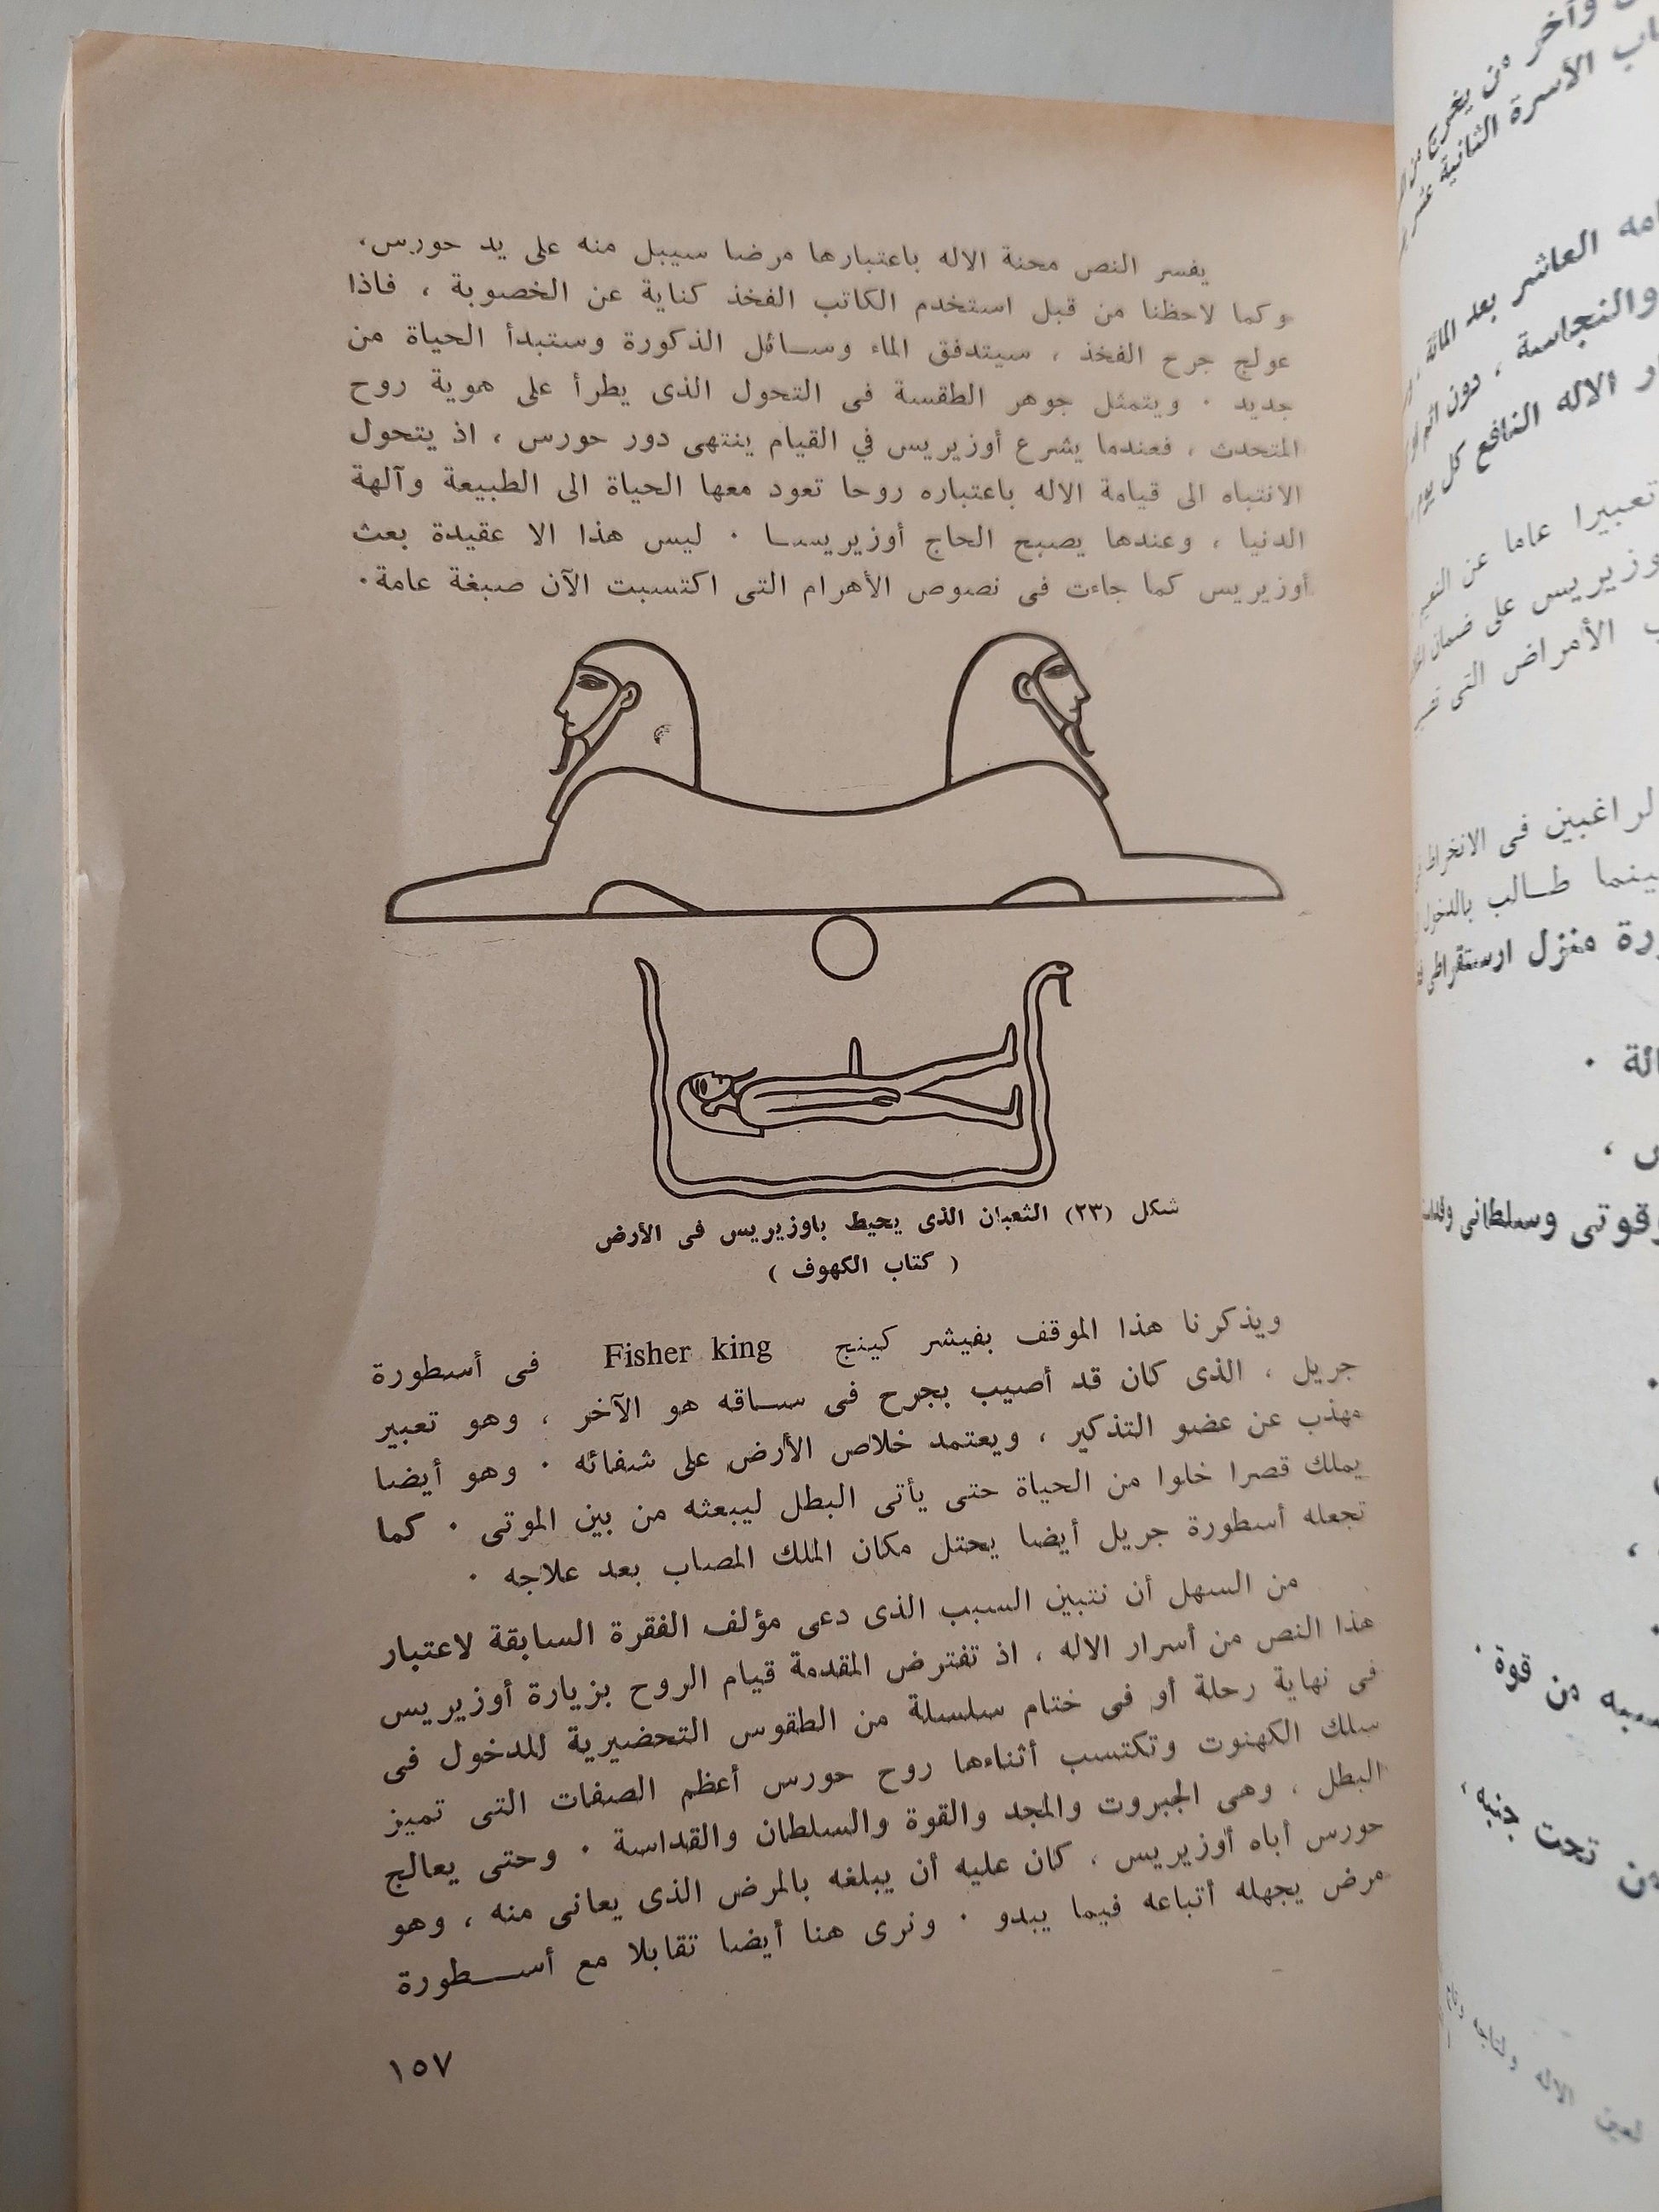 يفسر النص محنة الاله باعتبارها مرضا سيبل منه على يد حورس،
وكما لاحظنا من قبل استخدم الكاتب الفخذ كناية عن الخصوبة ، فاذا
عولج جرح الفخذ ، سيتدفق الماء وسائل الذكورة وستبدأ الحياة من
جديد · ويتمثل جوهر الطقسة فى التحول الذى يطرأ على هوية روح
المتحدث ، فعندما يشرع أوزيريس في القيام ينتهى دور حورس ، اذ يتحول
الانتباه الى قيامة الاله باعتباره روحا تعود معها الحياة الى الطبيعة وآلهة
الدنيا ، وعندها يصبح الحاج أوزيريسا · ليس هذا الا عقيدة بعث
أوزيريس كما جاءت فى نصوص الأهرام التى اكتسبت الآن صبغة عامة·
شكل (٢٣) الثعبان الذى يحيط باوزيريس فى الأرض
( كتاب الكهوف )
ويذكرنا هذا الموقف بفيشر كينج Fisher king فى أسطورة
جريل ، الذى كان قد أصيب بجرح فى ساقه هو الآخر ، وهو تعبير
مهذب عن عضو التذكير ، ويعتمد خلاص الأرض على شفائه · وهو أيضا
يملك قصرا خلوا من الحياة حتى يأتى البطل ليبعثه من بين الموتى · كما
تجعله أسطورة جريل أيضا يحتل مكان الملك المصاب بعد علاجه ·
من السهل أن نتبين السبب الذى دعى مؤلف الفقرة السابقة لاعتبار
هذا النص من أسرار الاله ، اذ تفترض المقدمة قيام الروح بزيارة أوزيريس
فى نهاية رحلة أو فى ختام سلسلة من الطقوس التحضيرية للدخول فى
سلك الكهنوت وتكتسب أثناءها روح حورس أعظم الصفات التى تميز
البطل ، وهى الجبروت والمجد والقوة والسلطان والقداسة · وحتى يعالج
حورس أباه أوزيريس ، كان عليه أن يبلغه بالمرض الذى يعانى منه ، وهو
مرض يجهله أتباعه فيما يبدو · ونرى هنا أيضا تقابلا مع أسطورة
١٥٧
وآخر من يغرينا من
الأسرة الثانية عشر
العاشر بعد المائة
والنجاسة ، دون
الاله النافع كل يوم
تعبيرا عاما عن النعيم
على ضمان
الأمراض التى
فى الانخراط
بينما طالب بالدخول
منزل ارستقراطى
وقوتى وسلطانى
من قوة ·
من تحت جنبه ،